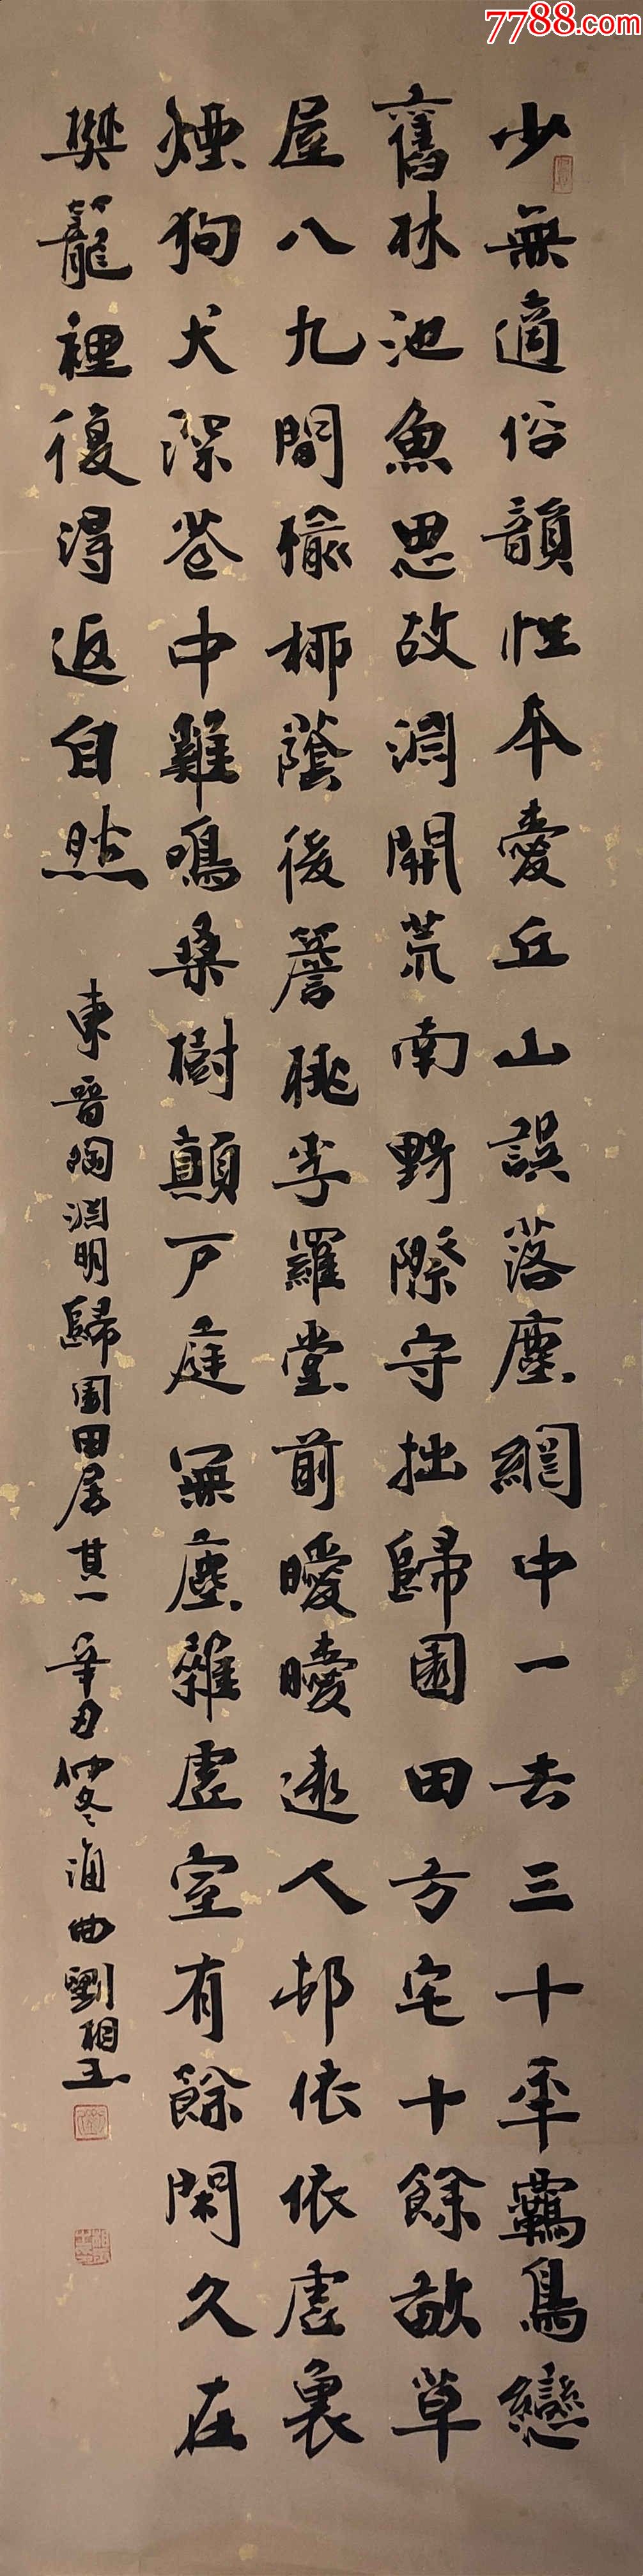 7788.com
少無適俗韻性本愛丘山誤落塵網中一去三十年羈鳥戀
舊林池魚思故淵開荒南野際守拙歸園田方宅十餘畝草
屋八九間榆柳蔭後簷桃李羅堂前曖曖遠人邨依依虛裏
煙狗犬深巷中雞鳴桑樹顛戶庭無塵雜虛室有餘閑久在
樊籠裡復得返自然 東晉陶淵明歸園田居其一 辛丑仲冬海曲劉相玉